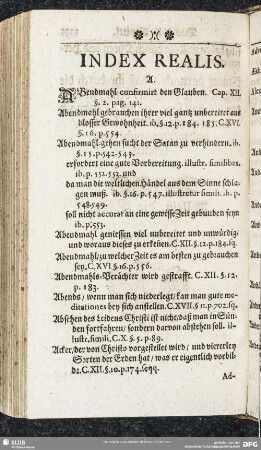 INDEX REALIS.
A.
ABendmahl confirmirt den Glauben. Cap. XII.
§. 2. pag. 141.
Abendmahl gebrauchen ihrer viel gantz unbereitet aus
blosser Gewohnheit. ib. §.12. p. 184. 185. C.XVI.
§. 16. p. 554.
Abendmahl-gehen sucht der Satan zu verhindern. ib.
§. 15. p. 542-543.
erfordert eine gute Vorbereitung. illustr. similibus.
ib. p. 552.553. und
da man die weltlichen Händel aus dem Sinne schla-
gen muß. ib. §.16. p. 547. illustratur simili. ib. p.
548.549.
soll nicht accurat an eine gewisse Zeit gebunden seyn
ib. p. 553.
Abendmahl geniessen viel unbereitet und unwürdig/
und woraus dieses zu erkeñen. C.XII. §. 12. p. 184. sq.
Abendmahl/ zu welcher Zeit es am besten zu gebrauchen
sey. C.XVI §. 16. p. 556.
Abendmahls-Verächter wird gestrafft. C. XII. §. 12.
p. 183.
Abends/ wenn man sich niederlegt/ kan man gute me-
ditationes bey sich anstellen. C.XVII. §. 11. p. 702. sq.
Absehen des Leidens Christi ist nicht/ daß man in Sün-
den fortfahren/ sondern darvon abstehen soll. il-
lustr. simili. C. X. §. 5. p. 89.
Acker/ der von Christo vorgestellet wird/ und viererley
Sorten der Erden hat/ was er eigentlich vorbil-
de. C.XII. §. 10. p. 174. seqq.
Ad-
SLUB
DFG